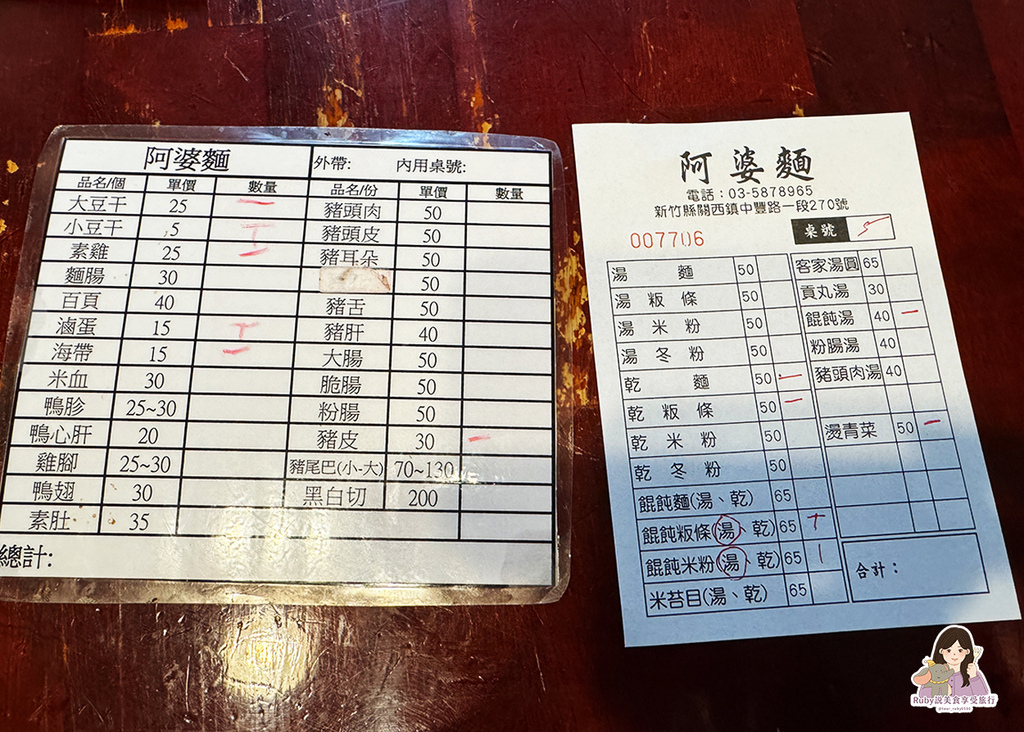 阿婆麵 外帶: 內用桌號:
品名/個 單價 數量 品名/份 單價 數量
大豆干 25 一 豬頭肉 50
小豆干 5 T 豬頭皮 50
素雞 25 一 豬耳朵 50
麵腸 30 50
百頁 40 豬舌 50
滷蛋 15 T 豬肝 40
海帶 15 一 大腸 50
米血 30 脆腸 50
鴨胗 25~30 粉腸 50
鴨心肝 20 豬皮 30 一
雞腳 25~30 豬尾巴(小-大) 70~130
鴨翅 30 黑白切 200
素肚 35
總計:
阿婆麵
電話：03-5878965
新竹縣關西鎮中豐路一段270號
007706 桌號 5
湯麵 50 客家湯圓 65
湯粄條 50 貢丸湯 30
湯米粉 50 餛飩湯 40 一
湯冬粉 50 粉腸湯 40
乾麵 50 一 豬頭肉湯 40
乾粄條 50 一
乾米粉 50 燙青菜 50 一
乾冬粉 50
餛飩麵(湯、乾) 65
餛飩粄條(湯、乾) 65
餛飩米粉(湯、乾) 65 合計：
米苔目(湯、乾) 65
Ruby説美食享受旅行